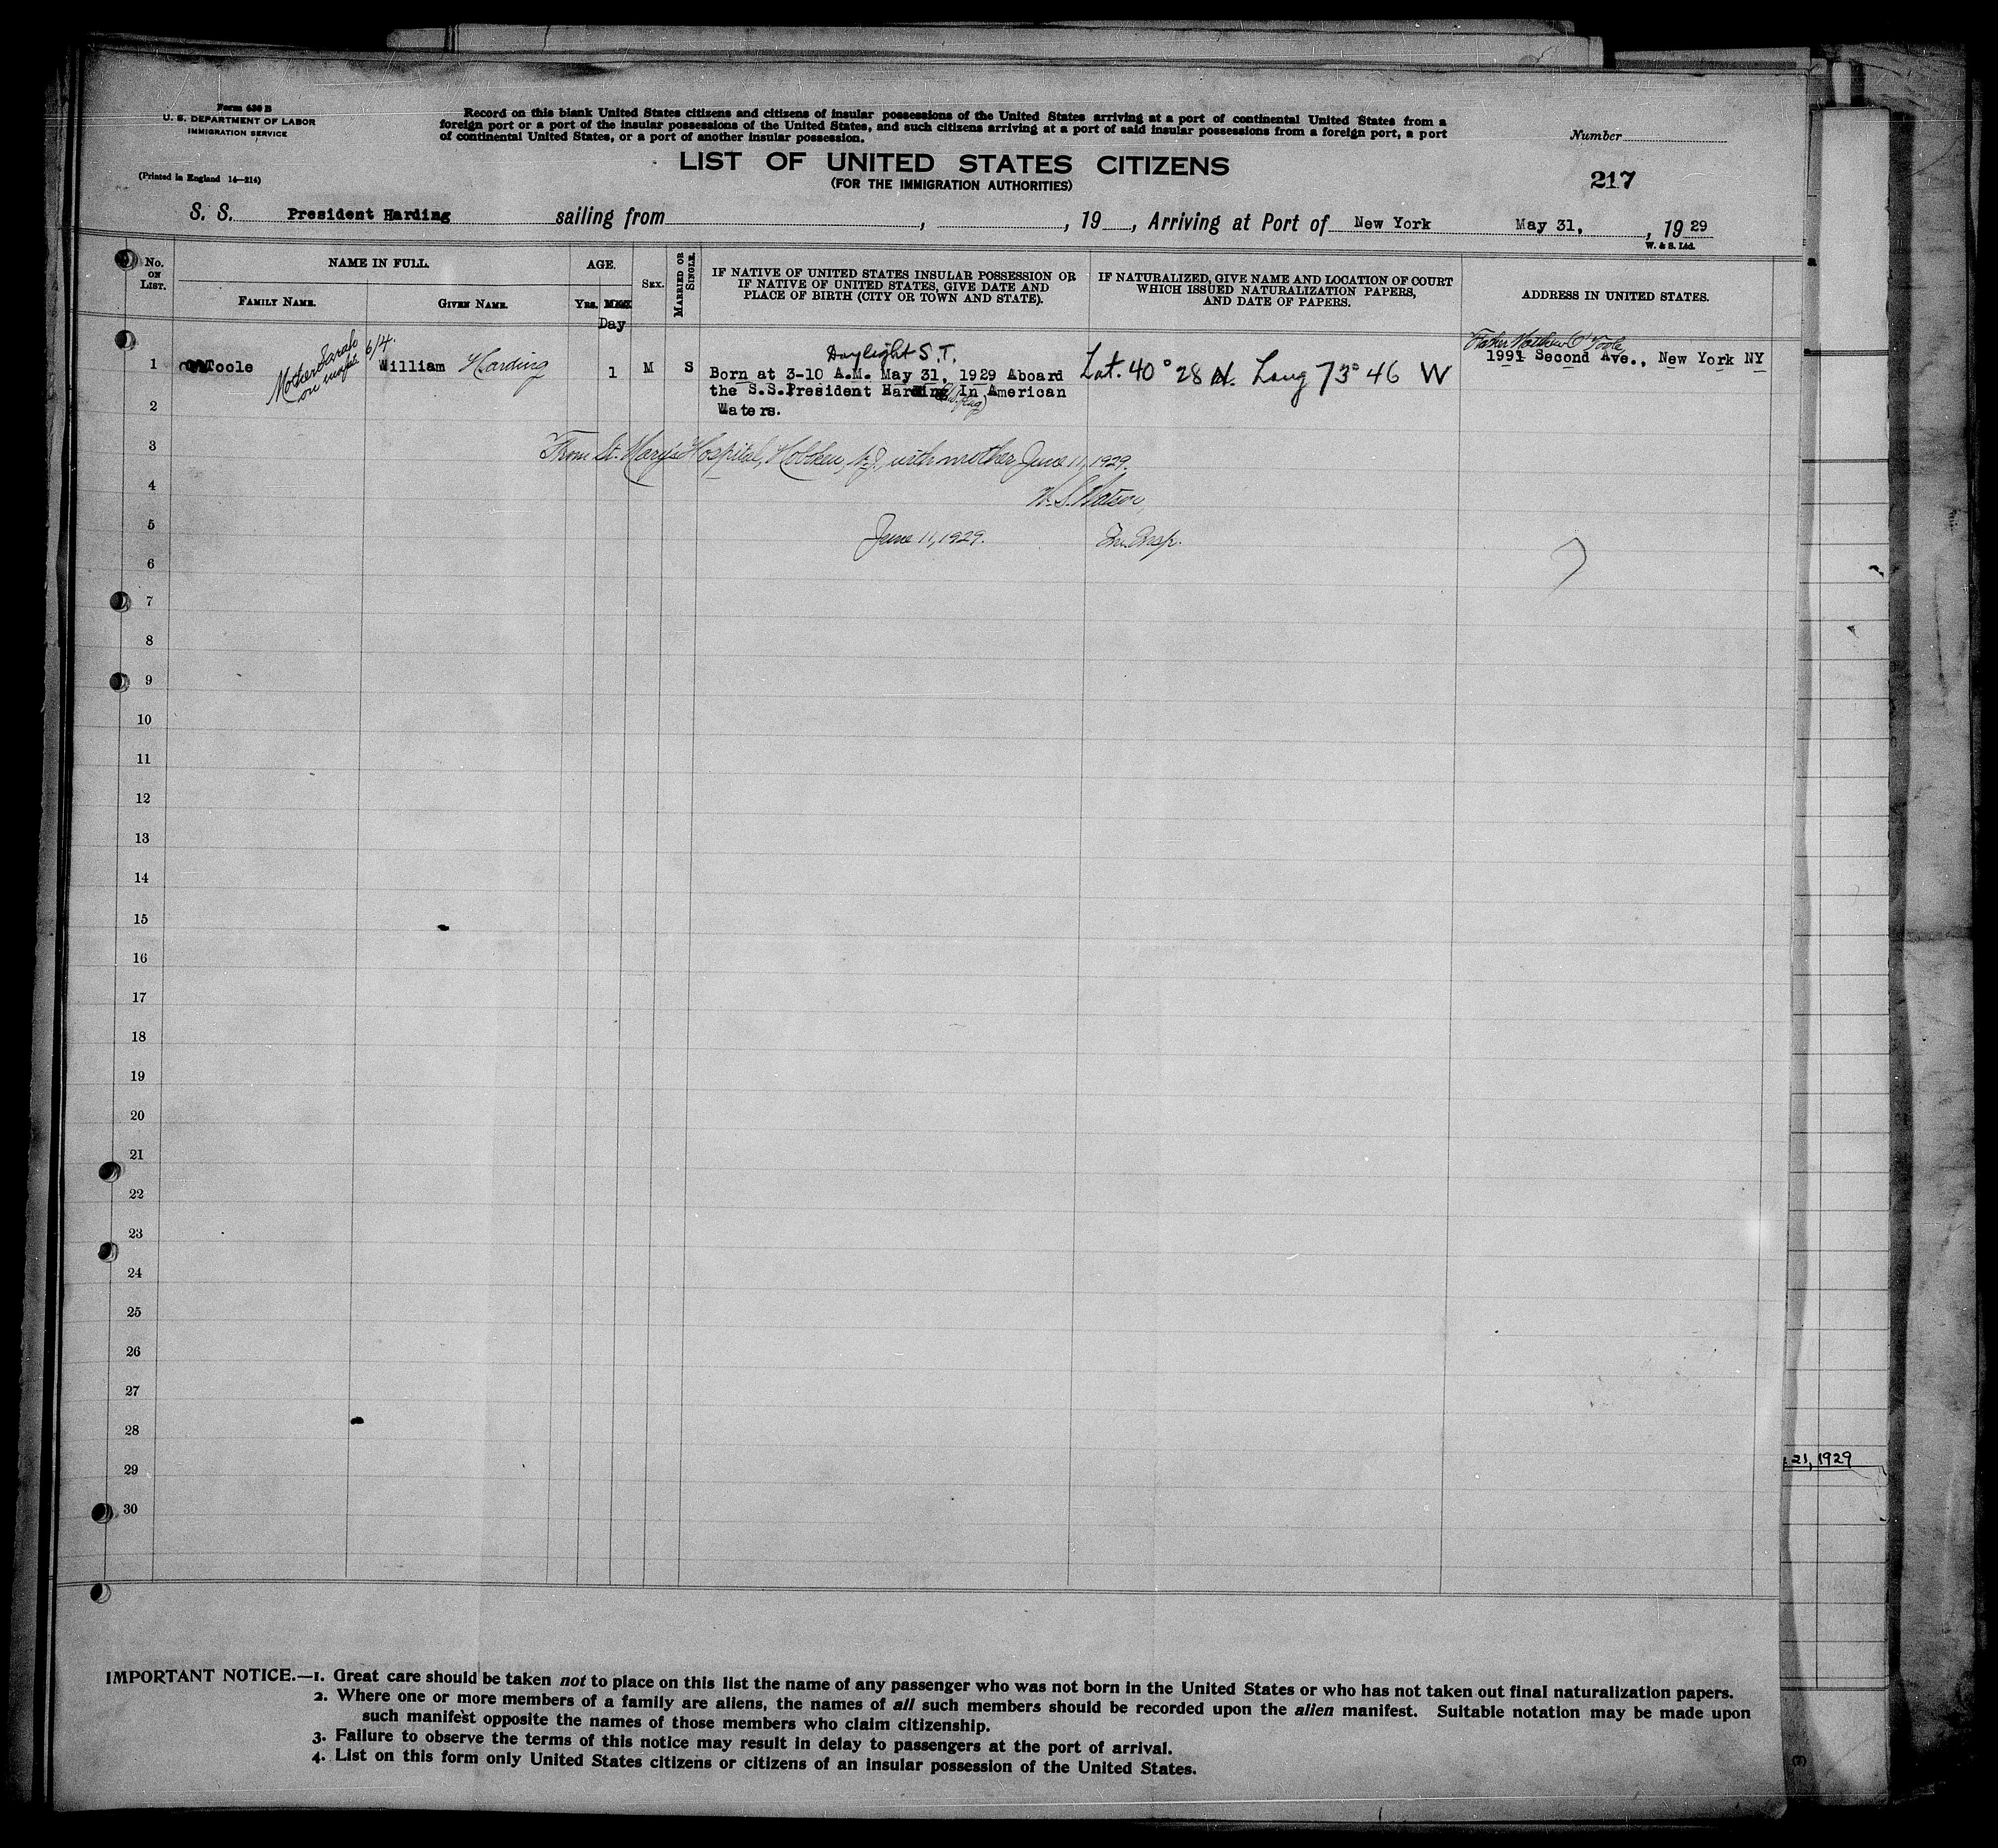 Form 630 B
U. S. DEPARTMENT OF LABOR
IMMIGRATION SERVICE
(Printed in England 14—214)
Record on this blank United States citizens and citizens of insular possessions of the United States arriving at a port of continental United States from a
foreign port or a port of the insular possessions of the United States, and such citizens arriving at a port of said insular possessions from a foreign port, a port
of continental United States, or a port of another insular possession.
Number
LIST OF UNITED STATES CITIZENS
(FOR THE IMMIGRATION AUTHORITIES)
217
S. S. President Harding sailing from , , 19 , Arriving at Port of New York May 31, , 19 29
W. & S. Ltd.
No. ON LIST.
NAME IN FULL.
FAMILY NAME.
GIVEN NAME.
AGE.
YRS.
Day
SEX.
MARRIED OR SINGLE.
IF NATIVE OF UNITED STATES INSULAR POSSESSION OR
IF NATIVE OF UNITED STATES, GIVE DATE AND
PLACE OF BIRTH (CITY OR TOWN AND STATE).
IF NATURALIZED, GIVE NAME AND LOCATION OF COURT
WHICH ISSUED NATURALIZATION PAPERS,
AND DATE OF PAPERS.
ADDRESS IN UNITED STATES.
Mother Sarah 6/4.
on manfst
Daylight S.T.
Father Matthew O'Toole
1 Toole William Harding 1 M S Born at 3-10 A.M. May 31, 1929 Aboard Lat. 40° 28 N. Long 73° 46 W 1991 Second Ave., New York NY
the S.S.President Harding In American
(US. flag)
2 Waters.
3 From St. Mary's Hospital, Hoboken, N.J., with mother June 11, 1929.
4 W. S. Watson,
5 June 11, 1929. Im. Insp.
6
7
8
9
10
11
12
13
14
15
16
17
18
19
20
21
22
23
24
25
26
27
28
29
30
21, 1929
IMPORTANT NOTICE.—1. Great care should be taken not to place on this list the name of any passenger who was not born in the United States or who has not taken out final naturalization papers.
2. Where one or more members of a family are aliens, the names of all such members should be recorded upon the alien manifest. Suitable notation may be made upon
such manifest opposite the names of those members who claim citizenship.
3. Failure to observe the terms of this notice may result in delay to passengers at the port of arrival.
4. List on this form only United States citizens or citizens of an insular possession of the United States.
(7)